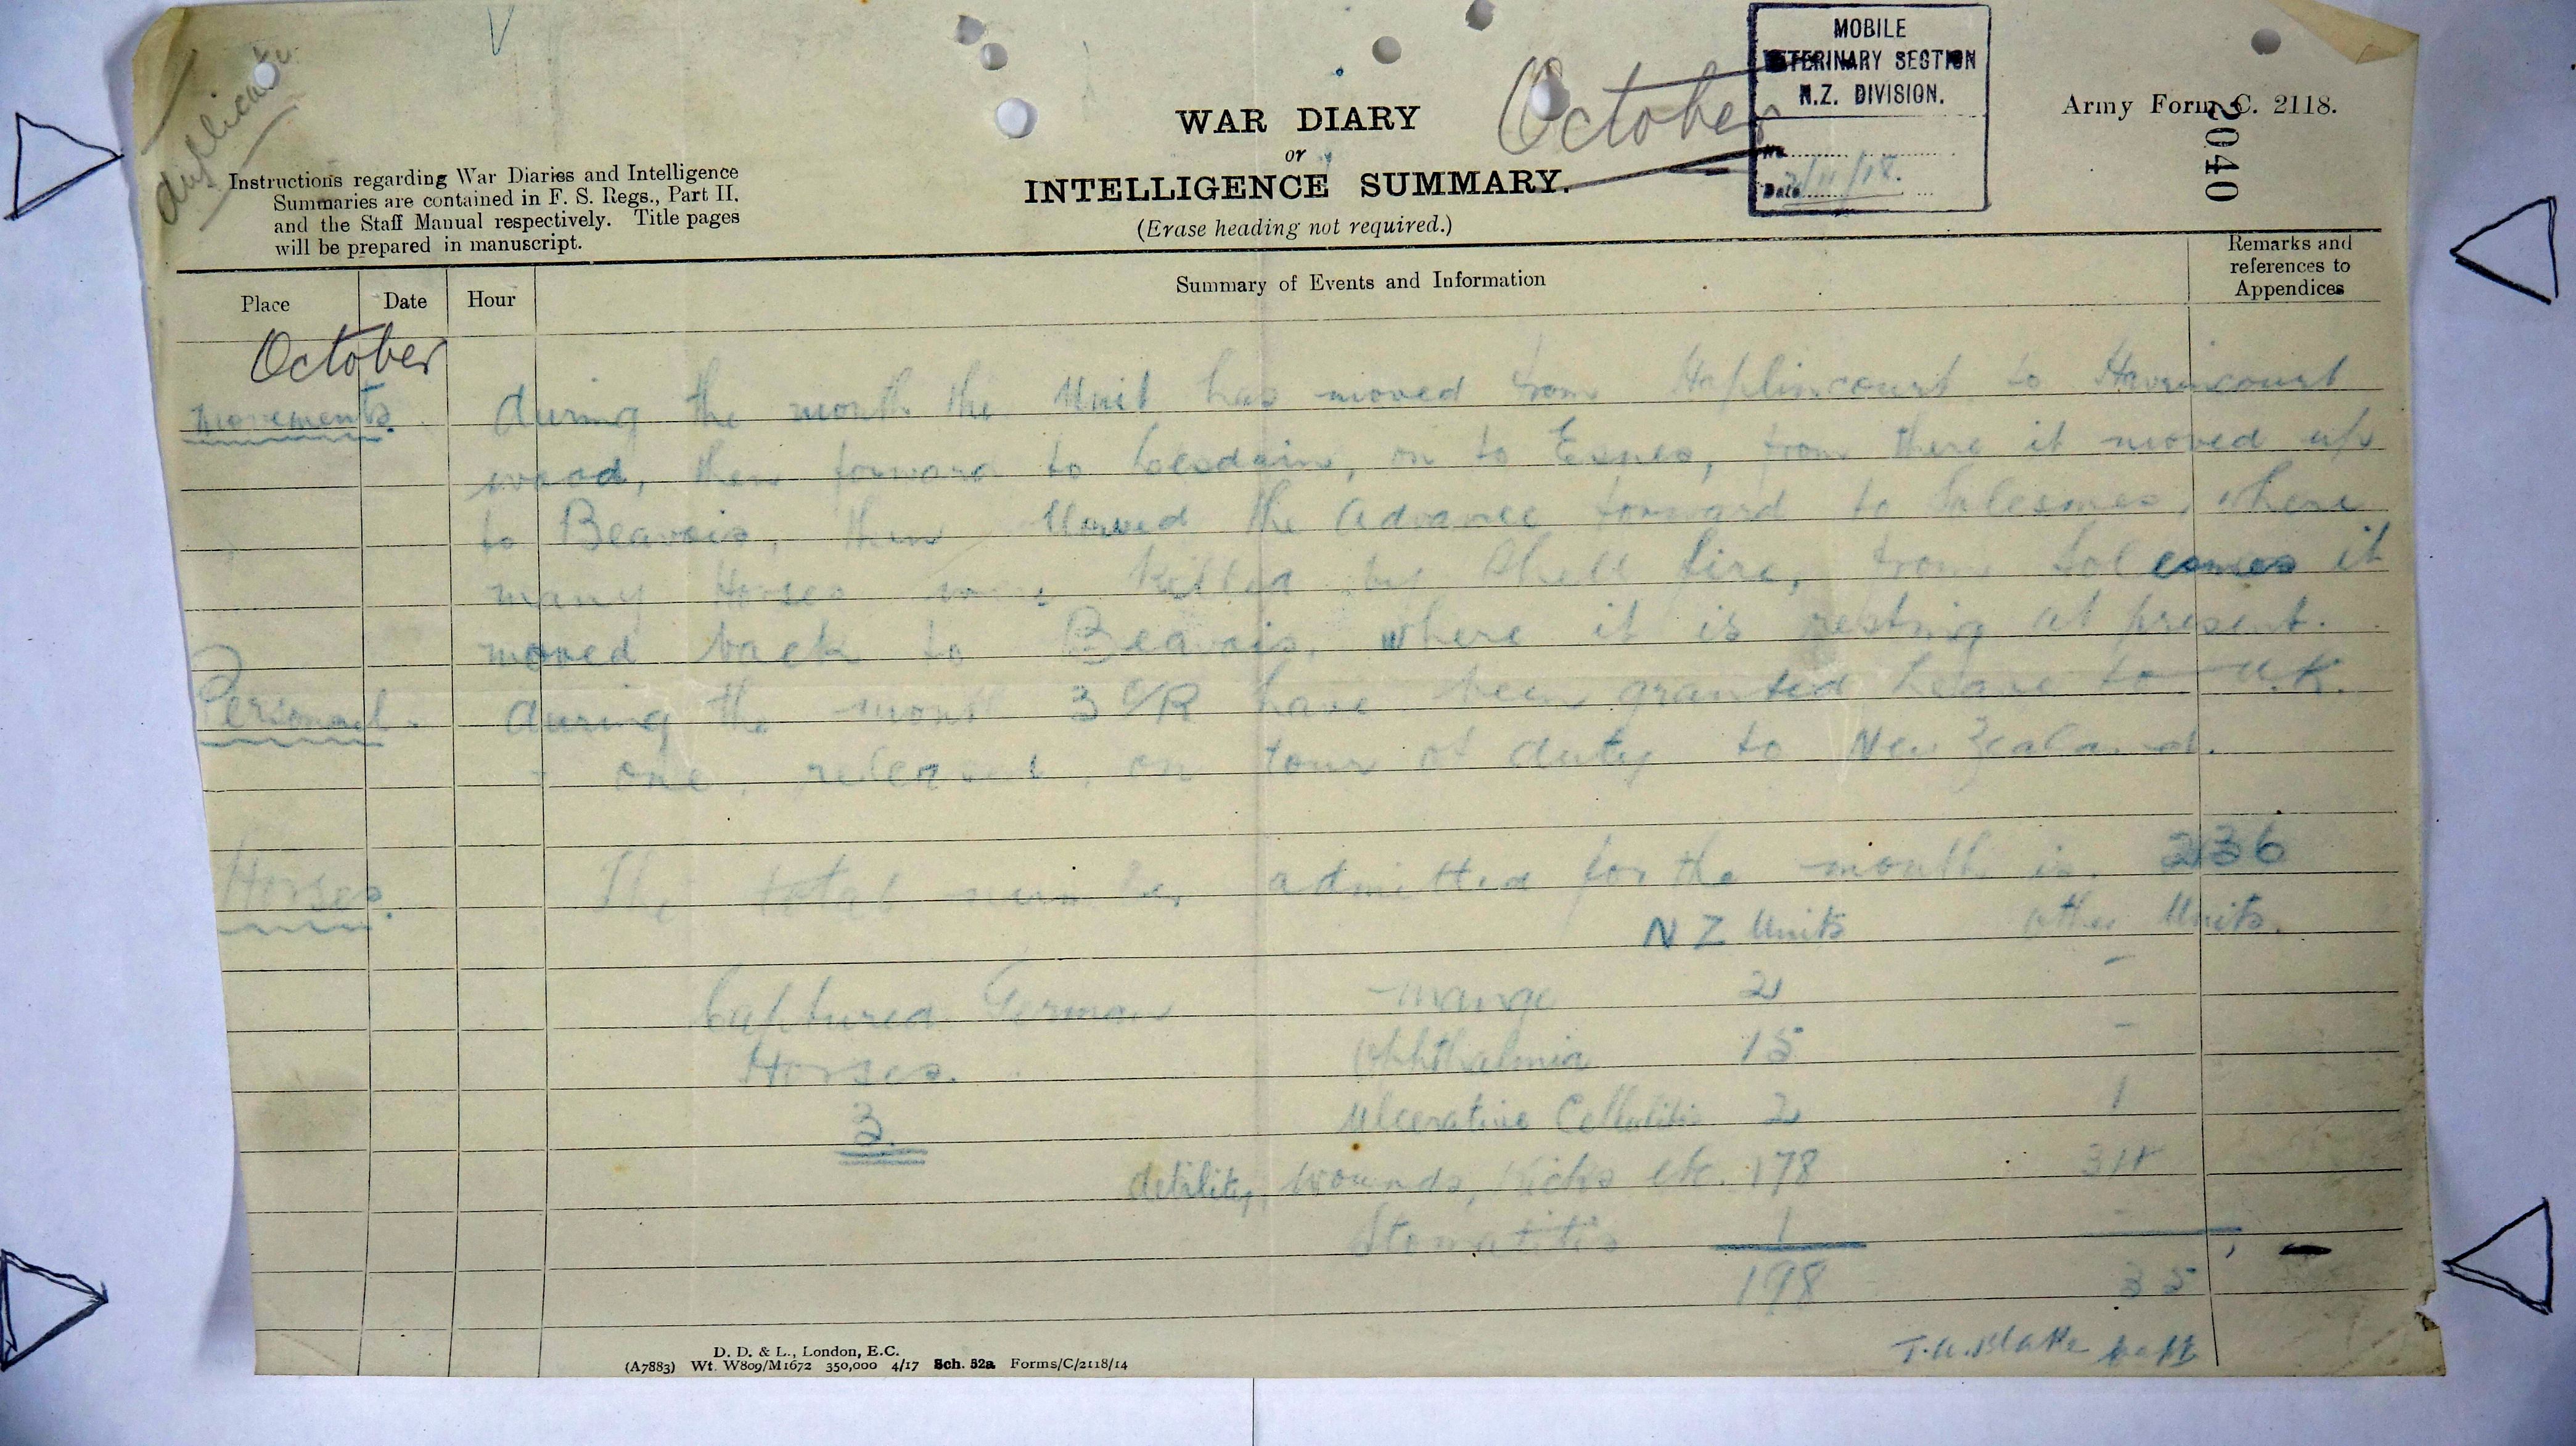 duplicate
MOBILE
VETERINARY SECTION
N.Z. DIVISION.
No.
Date 2/11/18.
October
Army Form C. 2118.
2040
WAR DIARY
or
INTELLIGENCE SUMMARY.
(Erase heading not required.)
Instructions regarding War Diaries and Intelligence
Summaries are contained in F. S. Regs., Part II.
and the Staff Manual respectively. Title pages
will be prepared in manuscript.
Place Date Hour Summary of Events and Information Remarks and references to Appendices
October
Movements. during the month the Unit has moved from Haplincourt to Havrincourt
wood, then forward to Lesdain, on to Esnes, from there it moved up
to Beavois, then the advance forward to Solesmes, where
many Horses were killed by Shell fire, from Solesmes it
moved back to Beavois, where it is resting at present.
Personnel. during the month 3 O/R have been granted Leave to U.K.
+ one released on tour of duty to New Zealand.
Horses. The total number admitted for the month is. 236
NZ Units other Units.
Captured German mange 2 -
Horses. Ophthalmia 15 -
3. Ulcerative Cellulitis 2 1
debility, wounds, Kicks etc. 178 34
Stomatitis 1
198 35
T.A. Blake Capt
D. D. & L., London, E.C.
(A7883) Wt. W809/M1672 350,000 4/17 Sch. 52a Forms/C/2118/14